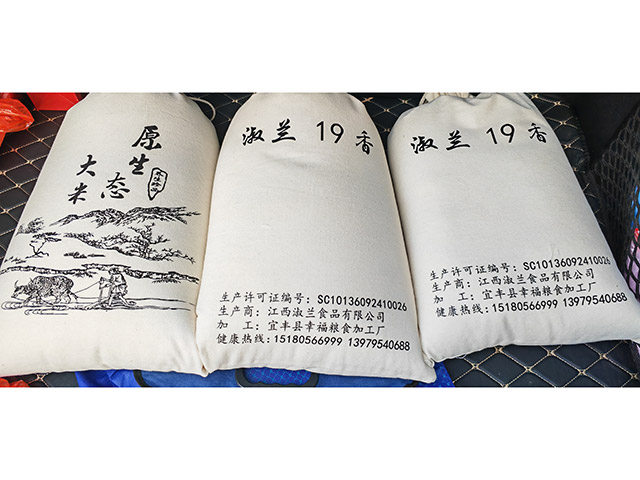 原生态
大米
淑兰 19 香
生产许可证编号: SC10136092410026
生产商: 江西淑兰食品有限公司
加 工: 宜丰县幸福粮食加工厂
健康热线: 15180566999 13979540688
淑兰 19 香
生产许可证编号: SC10136092410026
生产商: 江西淑兰食品有限公司
加 工: 宜丰县幸福粮食加工厂
健康热线: 15180566999 13979540688